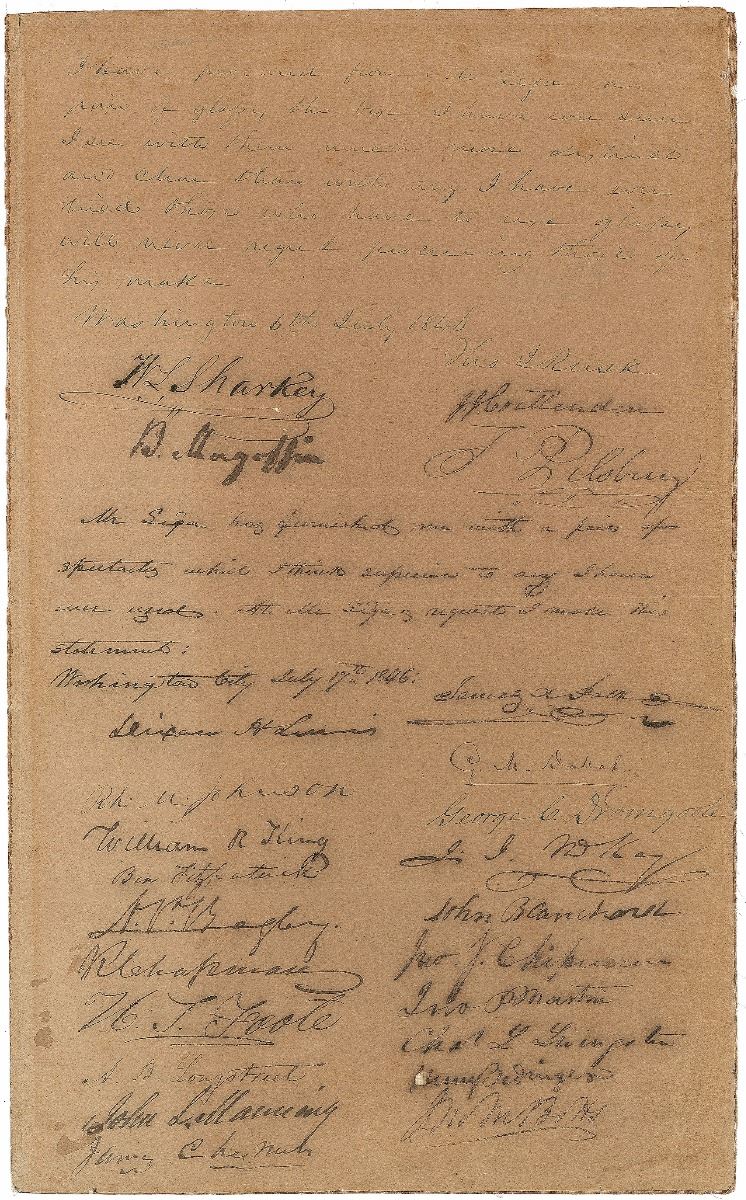 I have procured from Mr Eiga a
pair of glasses, the best I have ever seen
I see with them much more distinct
and clear than with any I have ever
used those who have to use glasses,
will never regret procuring those of
his make
Washington 6th July 1846
Tho J Rusk
W L Sharkey
J J Crittenden
B. Magoffin
T Pilsbury
Mr Eiga has furnished me with a pair of
spectacles which I think superior to any I have
ever used. At Mr Eiga,s request I make this
statement:
Washington City July 17th 1846.
Dixon H Lewis
R. M. Johnson
George C Dromgoole
William R King
J. J. McKay
Ben Fitzpatrick
A. P. Bagby.
John Blanchard
R Chapman
Jno. J. Chipman
H. S. Foote
Jno P Martin
Chas L Livingston
A. B Longstreet
Henry Bedinger
John L Manning
Jno M Botts
James Chesnut